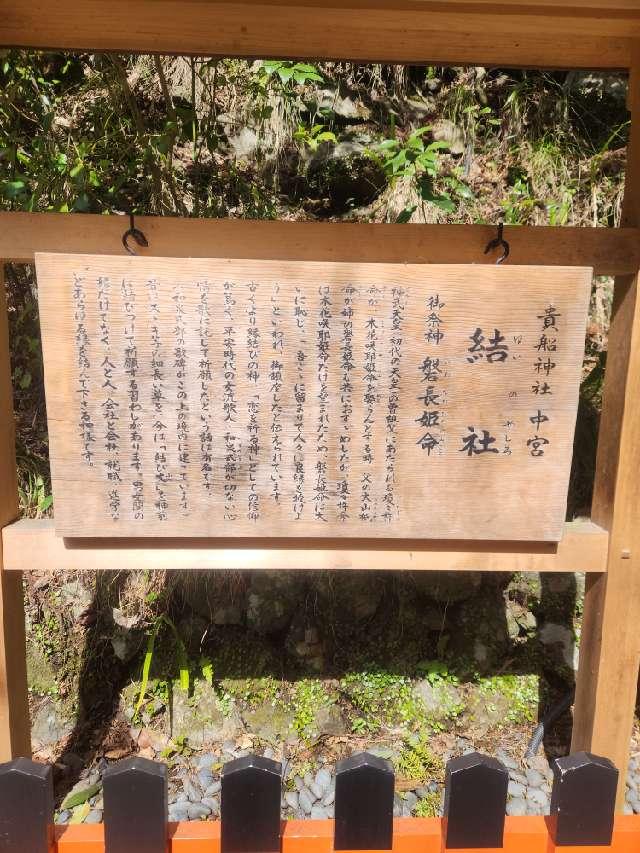 貴船神社 中宮
結社
ゆいのやしろ
御祭神 磐長姫命
神武天皇(初代の天皇)の曽祖父にあたられる瓊々杵
命が、木花咲耶姫命を娶らんとする時、父の大山祇
命が姉の磐長姫命も共におすすめしたが、瓊々杵命
は木花咲耶姫命だけを望まれたため、磐長姫命は大
いに恥じ、「吾ここに留まりて人々に良縁を授けよ
う」といわれ、御鎮座したと伝えられています。
古くより縁結びの神、「恋を祈る神」としての信仰
が篤く、平安時代の女流歌人・和泉式部が切ない心
情を歌に託して祈願したという話は有名です。
和泉式部の歌碑がこの上の境内に建っています。
昔はススキ等の細長い草を、今は「結び文」を神前
に結びつけて祈願する習わしがあります。男女間の
縁だけでなく、人と人、会社と会社、就職、進学な
どあらゆる縁を結んで下さる神様です。